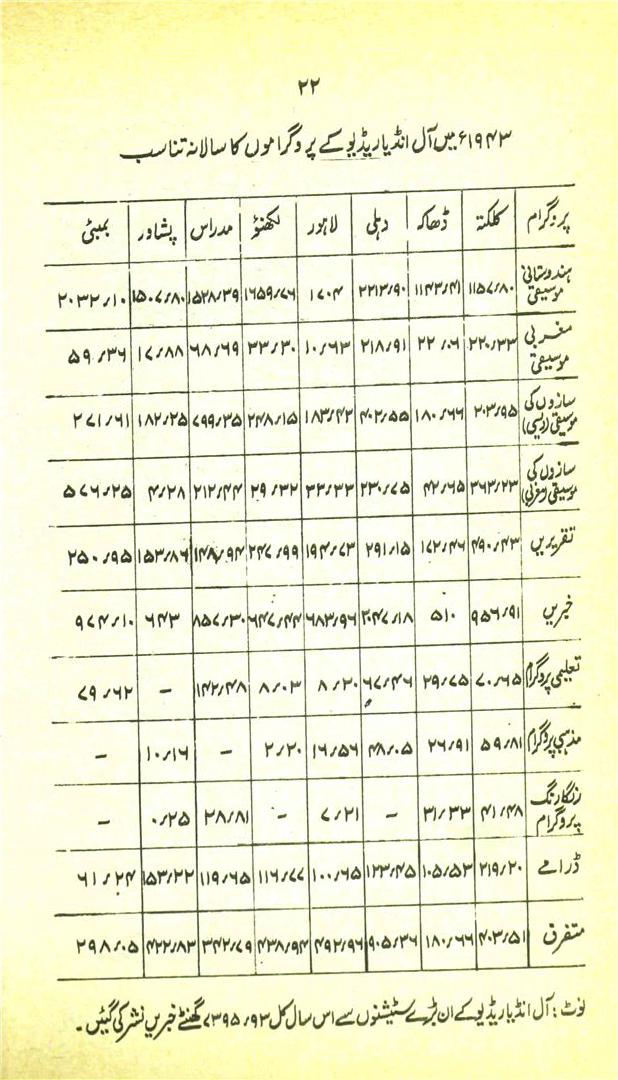 ۲۲
۱۹۴۳ء میں آل انڈیا ریڈیو کے پروگراموں کا سالانہ تناسب
پروگرام کلکتہ ڈھاکہ دہلی لاہور لکھنؤ مدراس پشاور بمبئی
ہندوستانی موسیقی ۱۱۵۷/۸۰ ۱۱۴۳/۴۱ ۲۲۱۳/۹۰ ۱۷۰۴ ۱۶۵۹/۷۶ ۱۵۲۸/۳۹ ۱۵۰۷/۸۰ ۲۰۳۲/۱۰
مغربی موسیقی ۲۲۰/۳۳ ۲۲/۰۶ ۲۱۸/۹۱ ۱۰/۶۳ ۳۳/۳۰ ۶۸/۶۹ ۱۷/۸۸ ۵۹/۳۶
سازوں کی موسیقی (دیسی) ۲۰۳/۹۵ ۱۸۰/۶۶ ۴۰۲/۵۵ ۱۸۳/۴۲ ۲۴۸/۱۵ ۷۹۹/۳۵ ۱۸۲/۲۵ ۲۷۱/۶۱
سازوں کی موسیقی (مغربی) ۳۶۳/۲۳ ۴۲/۶۵ ۲۳۰/۷۵ ۳۳/۳۳ ۲۹/۳۲ ۲۱۲/۴۴ ۴/۲۸ ۵۷۶/۲۵
تقریریں ۴۹۰/۴۳ ۱۷۲/۴۶ ۲۹۱/۱۵ ۱۹۴/۷۳ ۲۴۷/۹۹ ۱۴۸/۹۴ ۱۵۳/۸۶ ۲۵۰/۹۵
خبریں ۹۵۶/۹۱ ۵۱۰ ۲۰۴۷/۱۸ ۶۸۳/۹۶ ۶۴۷/۴۴ ۸۵۷/۳۰ ۶۴۳ ۹۷۴/۱۰
تعلیمی پروگرام ۷۰/۶۵ ۲۹/۷۵ ۶۷/۴۶ ۸/۲۰ ۸/۰۳ ۱۴۲/۴۸ - ۷۹/۶۲
مذہبی پروگرام ۵۹/۸۱ ۲۶/۹۱ ۴۸/۰۵ ۱۶/۵۶ ۲/۲۰ - ۱۰/۱۶ -
رنگارنگ پروگرام ۴۱/۴۸ ۳۱/۳۳ - ۷/۲۱ - ۲۸/۸۱ ۰/۲۵ -
ڈرامے ۲۱۹/۲۰ ۱۰۵/۵۳ ۱۲۳/۴۵ ۱۰۰/۶۵ ۱۱۶/۷۷ ۱۱۹/۶۵ ۱۵۳/۲۲ ۶۱/۲۴
متفرق ۴۰۳/۵۱ ۱۸۰/۶۶ ۹۰۵/۳۶ ۴۹۲/۹۶ ۴۳۸/۹۴ ۳۴۲/۷۹ ۴۲۲/۸۳ ۲۹۸/۰۵
نوٹ: آل انڈیا ریڈیو کے ان بڑے سٹیشنوں سے اس سال کل ۷۳۹۵/۹۳ گھنٹے خبریں نشر کی گئیں۔